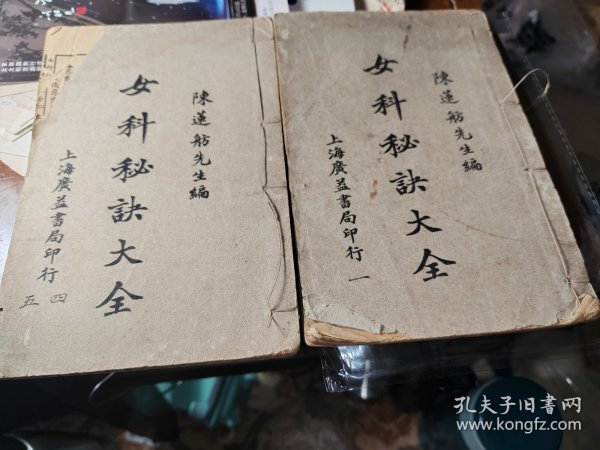 陳蓮舫先生編
女科秘訣大全
上海廣益書局印行 四
五
陳蓮舫先生編
女科秘訣大全
上海廣益書局印行 一
孔夫子旧书网
www.kongfz.com